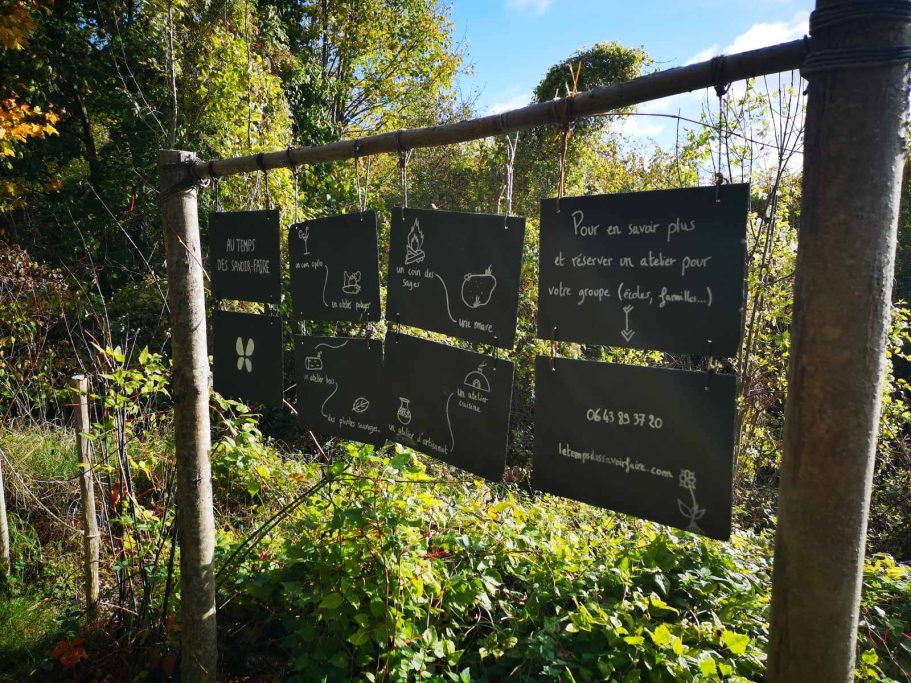 AU TEMPS
DES SAVOIR-FAIRE
un atelier poterie
un coin
des
sages
une mare
Pour en savoir plus
et réserver un atelier pour
votre groupe (écoles, familles...)
un atelier bois
des plantes sauvages
un atelier d'artisanat
un atelier
cuisine
06 43 89 37 20
letempsdessavoirfaire.com